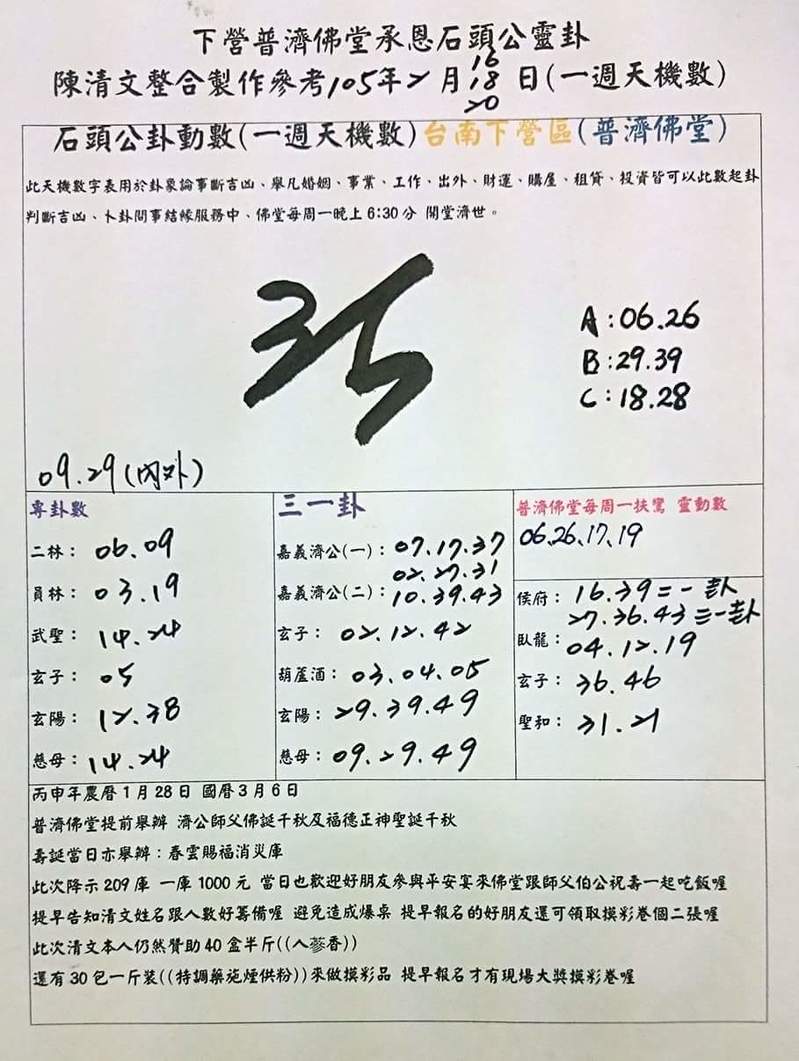 下營普濟佛堂承恩石頭公靈卦
16
陳清文整合製作參考105年2月18日(一週天機數)
20
石頭公卦動數(一週天機數)台南下營區(普濟佛堂)
此天機數字表用於卦象論事斷吉凶、舉凡婚姻、事業、工作、出外、財運、購屋、租貸、投資皆可以此數起卦
判斷吉凶、卜卦問事結緣服務中、佛堂每周一晚上6:30分 開堂濟世。
35
A:06.26
B:29.39
C:18.28
09.29(內外)
專卦數
二林: 06.09
員林: 03.19
武聖: 14.24
玄子: 05
玄陽: 12.38
慈母: 14.24
三一卦
嘉義濟公(一): 07.17.37
02.27.31
嘉義濟公(二): 10.39.43
玄子: 02.12.42
葫蘆酒: 03.04.05
玄陽: 29.39.49
慈母: 09.29.49
普濟佛堂每周一扶鸞 靈動數
06.26.17.19
侯府: 16.39二一卦
27.36.43三一卦
臥龍: 04.12.19
玄子: 36.46
聖和: 31.21
丙申年農曆1月28日 國曆3月6日
普濟佛堂提前舉辦 濟公師父佛誕千秋及福德正神聖誕千秋
壽誕當日亦舉辦:春雲賜福消災庫
此次降示209庫 一庫1000元 當日也歡迎好朋友參與平安宴來佛堂跟師父伯公祝壽一起吃飯喔
提早告知清文姓名跟人數好籌備喔 避免造成爆桌 提早報名的好朋友還可領取摸彩卷個二張喔
此次清文本人仍然贊助40盒半斤((人蔘香))
還有30包一斤裝((特調藥施煙供粉))來做摸彩品 提早報名才有現場大獎摸彩卷喔